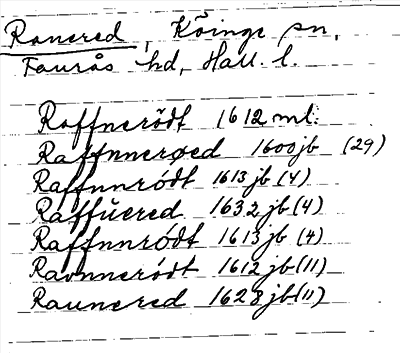 Ranered, Köinge sn,
Faurås hd, Hall. l.
Raffnerödt 1612 ml.
Raffnnerøed 1600 jb (29)
Raffnnródt 1613 jb (4)
Raffűered 1632 jb (4)
Raffnnródt 1613 jb (4)
Raonneródt 1612 jb (11)
Raunered 1628 jb (11)